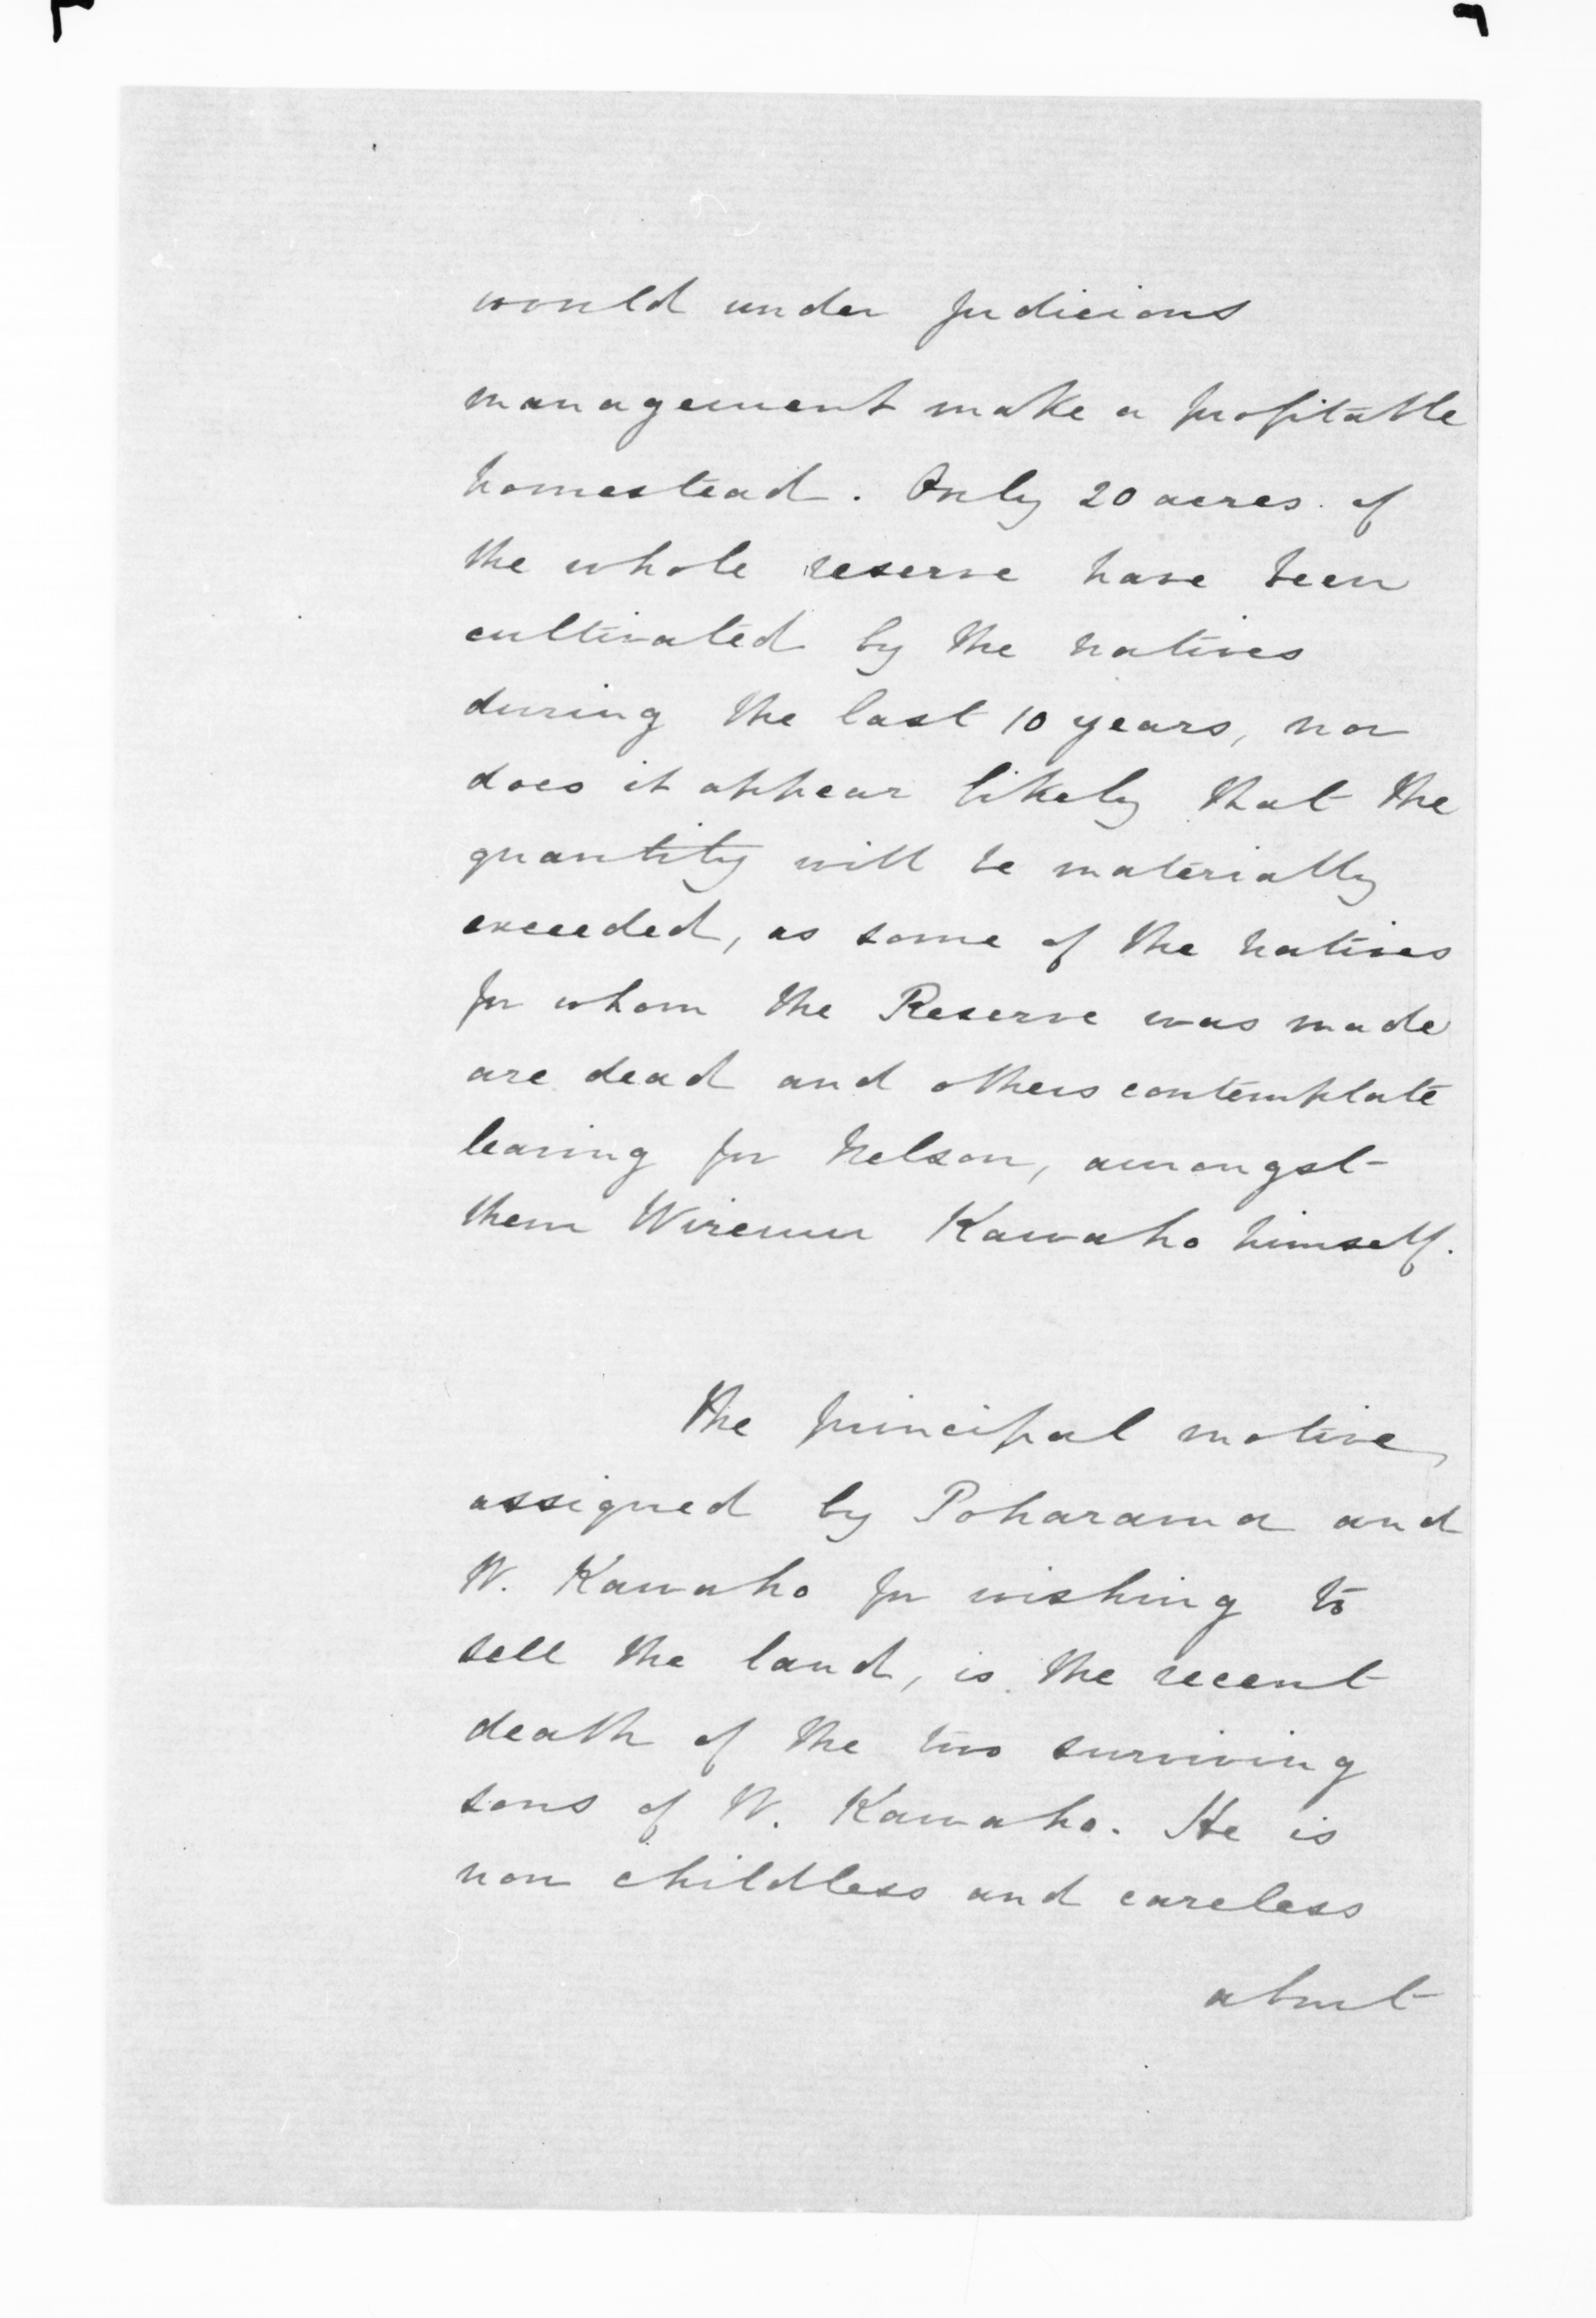 would under judicious
management make a profitable
homestead. Only 20 acres of
the whole reserve have been
cultivated by the natives
during the last 10 years, nor
does it appear likely that the
quantity will be materially
exceeded, as some of the natives
for whom the Reserve was made
are dead and others contemplate
leaving for Nelson, amongst
them Wiremu Kawaho himself.
The principal motive,
assigned by Poharama and
W. Kawaho for wishing to
sell the land, is the recent
death of the two surviving
sons of W. Kawaho. He is
now childless and careless
about